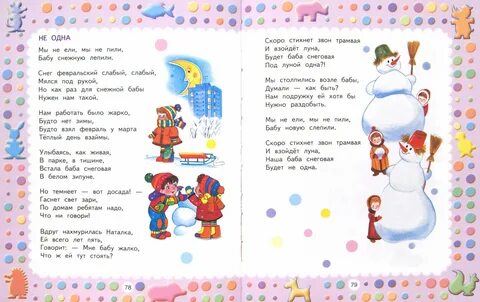 НЕ ОДНА
Мы не ели, мы не пили,
Бабу снежную лепили.
Снег февральский слабый, слабый,
Мялся под рукой,
Но как раз для снежной бабы
Нужен нам такой.
Нам работать было жарко,
Будто нет зимы,
Будто взял февраль у марта
Тёплый день взаймы.
Улыбаясь, как живая,
В парке, в тишине,
Встала баба снеговая
В белом зипуне.
Но темнеет — вот досада! —
Гаснет свет зари,
По домам ребятам надо,
Что ни говори!
Вдруг нахмурилась Наталка,
Ей всего лет пять,
Говорит: — Мне бабу жалко,
Что ж ей тут стоять?
78
Скоро стихнет звон трамвая
И взойдёт луна,
Будет баба снеговая
Под луной одна?!
Мы столпились возле бабы,
Думали — как быть?
Нам подружку ей хотя бы
Нужно раздобыть.
Мы не ели, мы не пили,
Бабу новую слепили.
Скоро стихнет звон трамвая
И взойдёт луна,
Наша баба снеговая
Будет не одна.
79